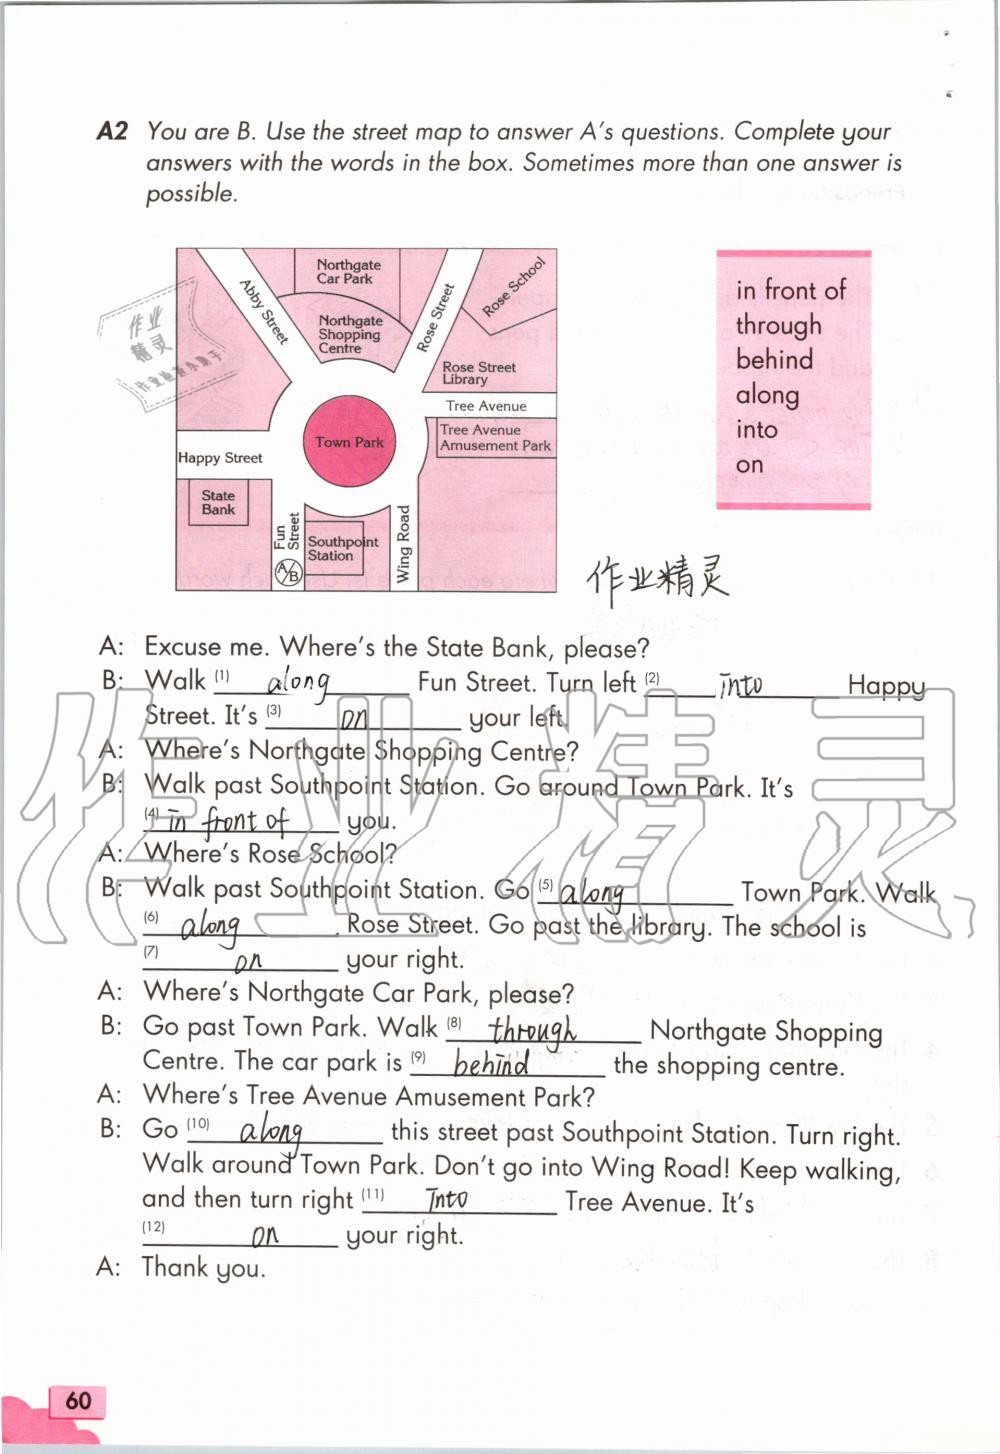 A2 You are B. Use the street map to answer A's questions. Complete your
answers with the words in the box. Sometimes more than one answer is
possible.
Northgate
Car Park
Abby Street
Northgate
Shopping
Centre
Rose Street
Rose School
Rose Street
Library
Tree Avenue
Tree Avenue
Amusement Park
Town Park
Happy Street
State
Bank
Fun
Street
A/B
Southpoint
Station
Wing Road
in front of
through
behind
along
into
on
作业
精灵
作业精灵
A: Excuse me. Where's the State Bank, please?
B: Walk (1) along Fun Street. Turn left (2) into Happy
Street. It's (3) on your left.
A: Where's Northgate Shopping Centre?
B: Walk past Southpoint Station. Go around Town Park. It's
(4) in front of you.
A: Where's Rose School?
B: Walk past Southpoint Station. Go (5) along Town Park. Walk
(6) along Rose Street. Go past the library. The school is
(7) on your right.
A: Where's Northgate Car Park, please?
B: Go past Town Park. Walk (8) through Northgate Shopping
Centre. The car park is (9) behind the shopping centre.
A: Where's Tree Avenue Amusement Park?
B: Go (10) along this street past Southpoint Station. Turn right.
Walk around Town Park. Don't go into Wing Road! Keep walking,
and then turn right (11) into Tree Avenue. It's
(12) on your right.
A: Thank you.
作业精灵
60